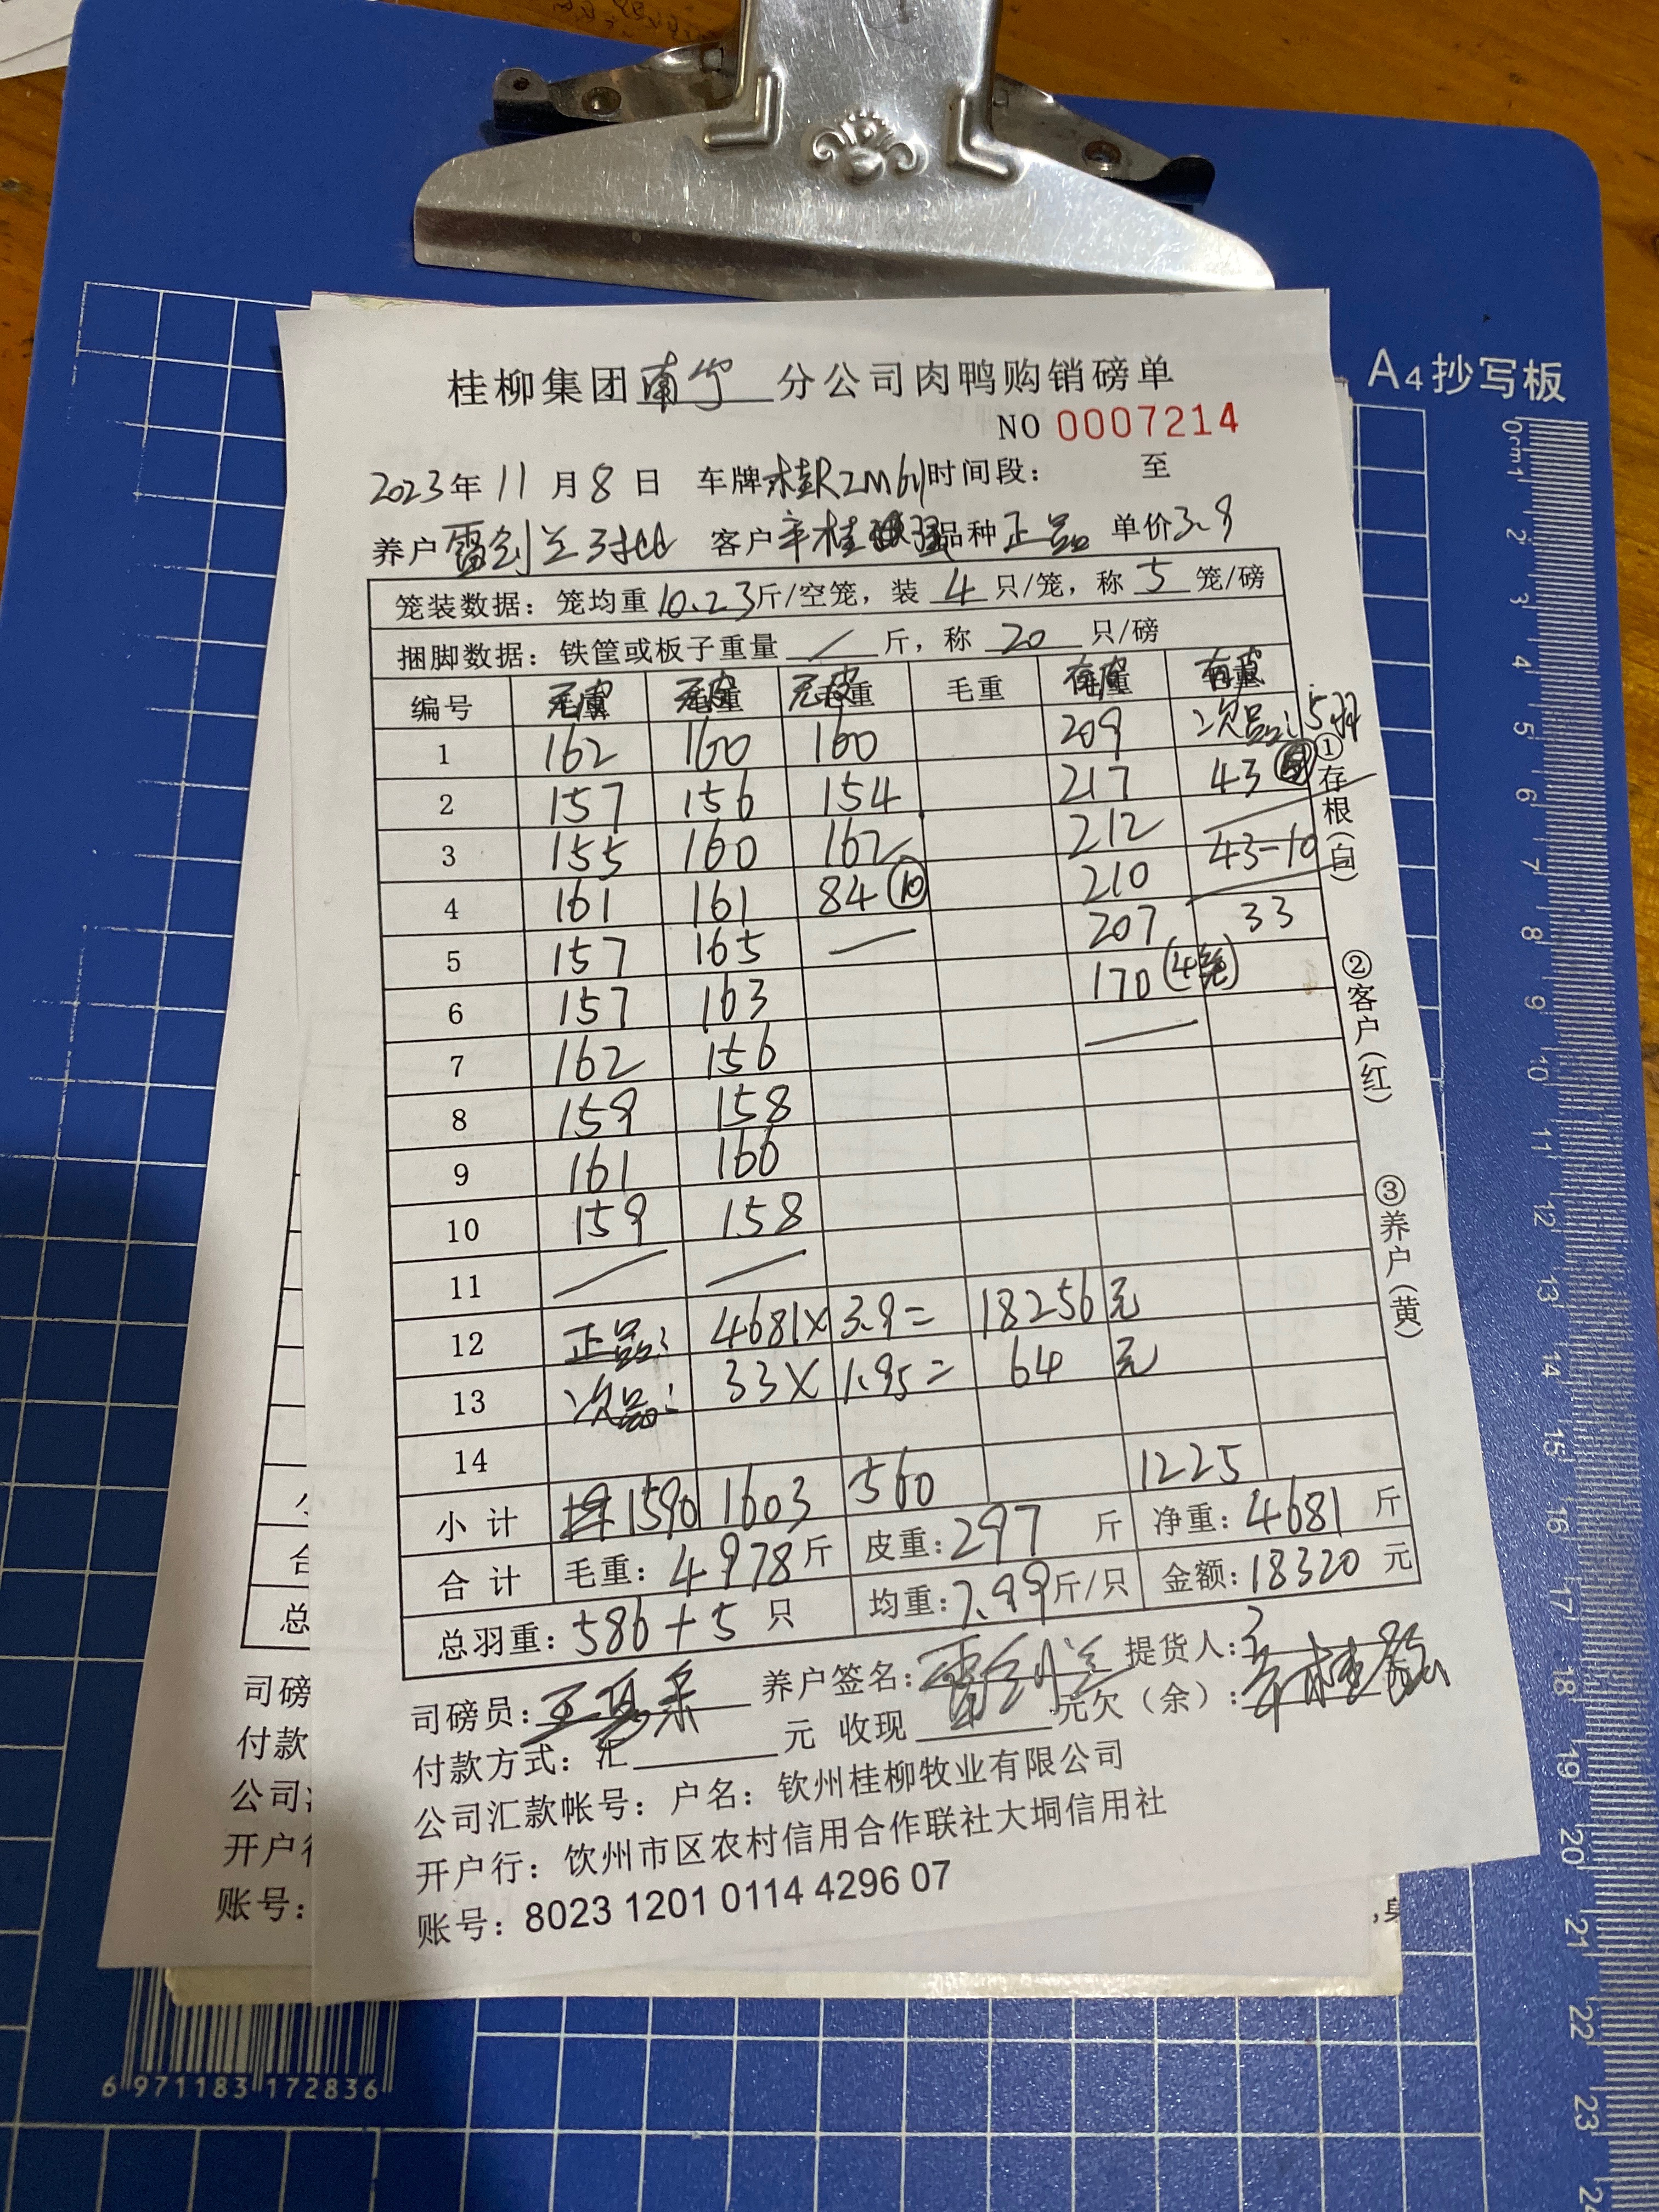 A4抄写板
桂柳集团南宁分公司肉鸭购销磅单
NO 0007214
2023年 11 月 8 日 车牌桂R2M61时间段: 至
养户雷剑兰对比 客户辛桂 品种正品 单价3.9
笼装数据: 笼均重10.23斤/空笼, 装 4 只/笼, 称 5 笼/磅
捆脚数据: 铁筐或板子重量 / 斤, 称 20 只/磅
编号 无皮 无皮 无皮 毛重 有皮 有皮
1 162 160 160 209 次品: 5羽
2 157 156 154 217 43
3 155 160 162 212 43-10
4 161 161 84 ⑩ 210 33
5 157 165 — 207
6 157 163 170 (4笼)
7 162 156 —
8 159 158
9 161 166
10 159 158
11 — —
12 正品: 4681× 3.9= 18256 元
13 次品: 33× 1.95= 64 元
14
小计 1590 1603 560 1225
合计 毛重: 4978斤 皮重: 297 斤 净重: 4681 斤
总羽重: 586+5 只 均重: 7.99斤/只 金额: 18320 元
司磅员: 养户签名: 雷剑兰 提货人:
付款方式: 汇 元 收现 元欠(余):
公司汇款帐号: 户名: 钦州桂柳牧业有限公司
开户行: 钦州市区农村信用合作联社大垌信用社
账号: 8023 1201 0114 4296 07
①存根(白)
②客户(红)
③养户(黄)
司磅
付款
公司
开户行
账号:
6 971183 172836
0cm1 2 3 4 5 6 7 8 9 10 11 12 13 14 15 16 17 18 19 20 21 22 23